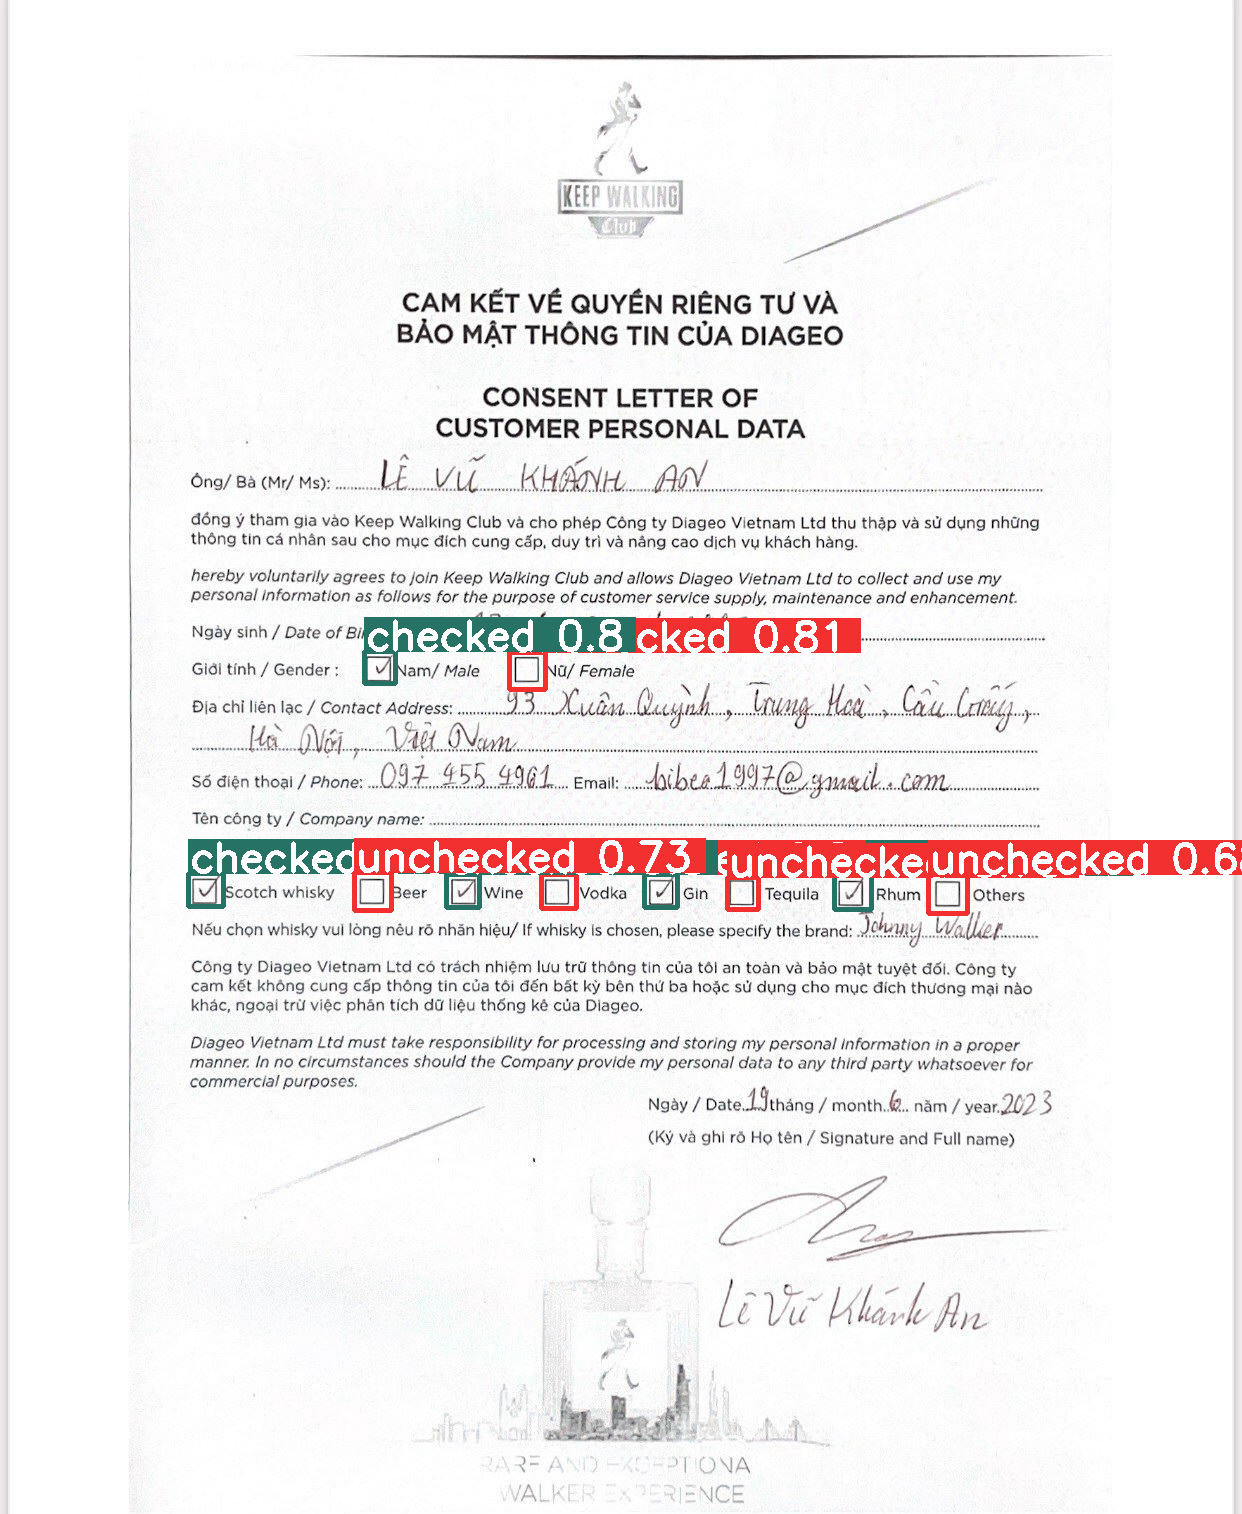 KEEP WALKING
Club
CAM KẾT VỀ QUYỀN RIÊNG TƯ VÀ
BẢO MẬT THÔNG TIN CỦA DIAGEO
CONSENT LETTER OF
CUSTOMER PERSONAL DATA
Ông/ Bà (Mr/ Ms): LÊ VŨ KHÁNH AN
đồng ý tham gia vào Keep Walking Club và cho phép Công ty Diageo Vietnam Ltd thu thập và sử dụng những
thông tin cá nhân sau cho mục đích cung cấp, duy trì và nâng cao dịch vụ khách hàng.
hereby voluntarily agrees to join Keep Walking Club and allows Diageo Vietnam Ltd to collect and use my
personal information as follows for the purpose of customer service supply, maintenance and enhancement.
Ngày sinh / Date of
checked 0.8 cked 0.81
Giới tính / Gender : Nam/ Male Nữ/ Female
Địa chỉ liên lạc / Contact Address: 93 Xuân Quỳnh, Trung Hoà, Cầu Giấy,
Hà Nội, Việt Nam
Số điện thoại / Phone: 097 455 4961 Email: bibea1997@gmail.com
Tên công ty / Company name:
checked unchecked 0.73 unchecke unchecked 0.6
Scotch whisky Beer Wine Vodka Gin Tequila Rhum Others
Nếu chọn whisky vui lòng nêu rõ nhãn hiệu/ If whisky is chosen, please specify the brand: Johnny Walker
Công ty Diageo Vietnam Ltd có trách nhiệm lưu trữ thông tin của tôi an toàn và bảo mật tuyệt đối. Công ty
cam kết không cung cấp thông tin của tôi đến bất kỳ bên thứ ba hoặc sử dụng cho mục đích thương mại nào
khác, ngoại trừ việc phân tích dữ liệu thống kê của Diageo.
Diageo Vietnam Ltd must take responsibility for processing and storing my personal information in a proper
manner. In no circumstances should the Company provide my personal data to any third party whatsoever for
commercial purposes.
Ngày / Date 19 tháng / month 6 năm / year 2023
(Ký và ghi rõ Họ tên / Signature and Full name)
Lê Vũ Khánh An
RARE AND EXCEPTIONA
WALKER EXPERIENCE